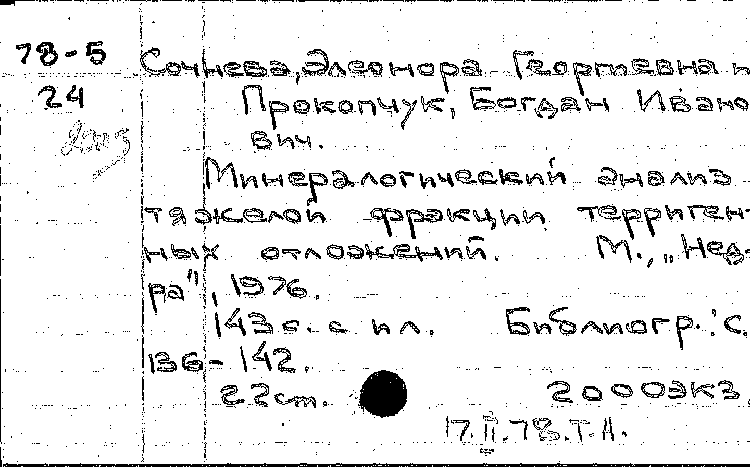 78-5 Сочнева, Элеонора Георгиевна и
24 Прокопчук, Богдан Ивано
вич.
Минералогический анализ
тяжелой фракции терриген-
ных отложений. М., „Нед-
ра", 1976.
143 с. с ил. Библиогр.: с.
136-142.
22 ст. 2000экз.
17.II.78.Т.А.